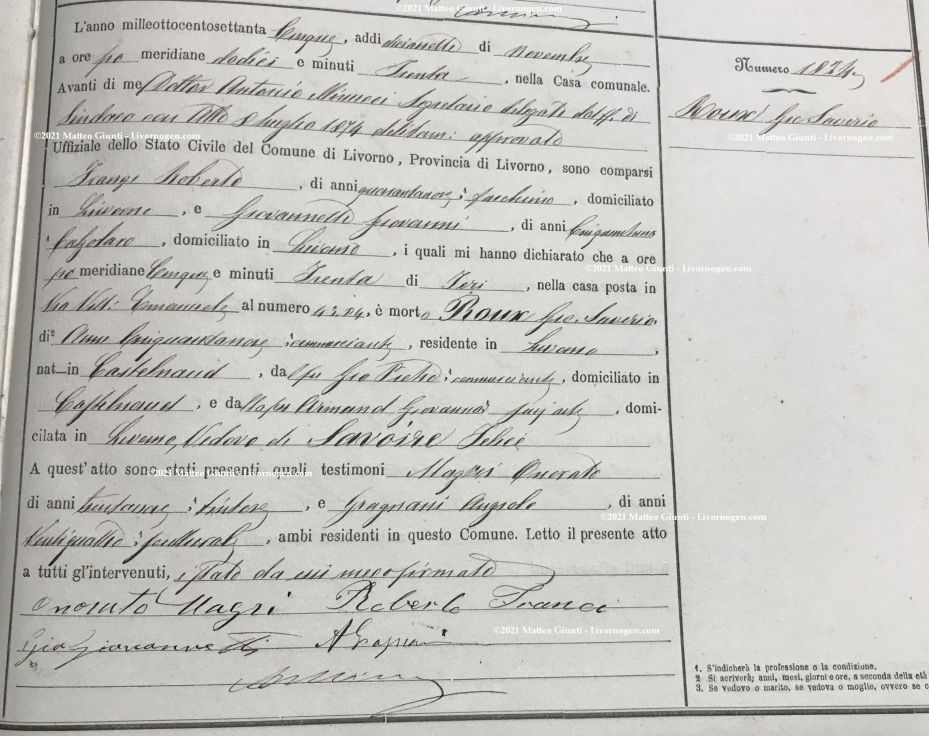 ©2021 Matteo Giunti - Livornogen.com
L'anno milleottocentosettanta Cinque, addì diciasette di Novembre
a ore po meridiane dodici e minuti Trenta, nella Casa comunale.
Avanti di me Dottor Antonio Minucci Segretario delegato dal ff. di
Sindaco con Atto 8 luglio 1874 debitam: approvato
©2021 Matteo Giunti - Livornogen.com
Uffiziale dello Stato Civile del Comune di Livorno, Provincia di Livorno, sono comparsi
Franci Roberto, di anni quarantanove, facchino, domiciliato
in Livorno, e Giovannetti Giovanni, di anni
Calzolaro, domiciliato in Livorno, i quali mi hanno dichiarato che a ore
po meridiane Cinque e minuti Trenta di Ieri, nella casa posta in
Via Vitt: Emanuele al numero 43. 24, è morto Roux Gio. Saverio
di² Anni Cinquantanove, commerciante, residente in Livorno,
nat in Castelnaud, da fu Gio Pietro, commerciante, domiciliato in
Castelnaud, e da Armand Giovanna, domi-
cilata in Livorno, Vedovo di Savoire Felice
A quest'atto sono stati presenti quali testimoni Magri Onorato
di anni trentanove, tintore, e Gragnani Augusto, di anni
Ventiquattro, ambi residenti in questo Comune. Letto il presente atto
a tutti gl'intervenuti, è stato da essi meco firmato
Onorato Magri Roberto Franci
Gio Giovannetti A Gragnani
Numero 1824
Roux Gio Saverio
©2021 Matteo Giunti - Livornogen.com
©2021 Matteo Giunti - Livornogen.com
©2021 Matteo Giunti - Livornogen.com
©2021 Matteo Giunti - Livornogen.com
©2021 Matteo Giunti - Livornogen.com
©2021 Matteo Giunti - Livornogen.com
1. S'indicherà la professione o la condizione.
2 Si scriverà; anni, mesi, giorni e ore, a seconda della età
3. Se vedovo o marito, se vedova o moglie, ovvero se c